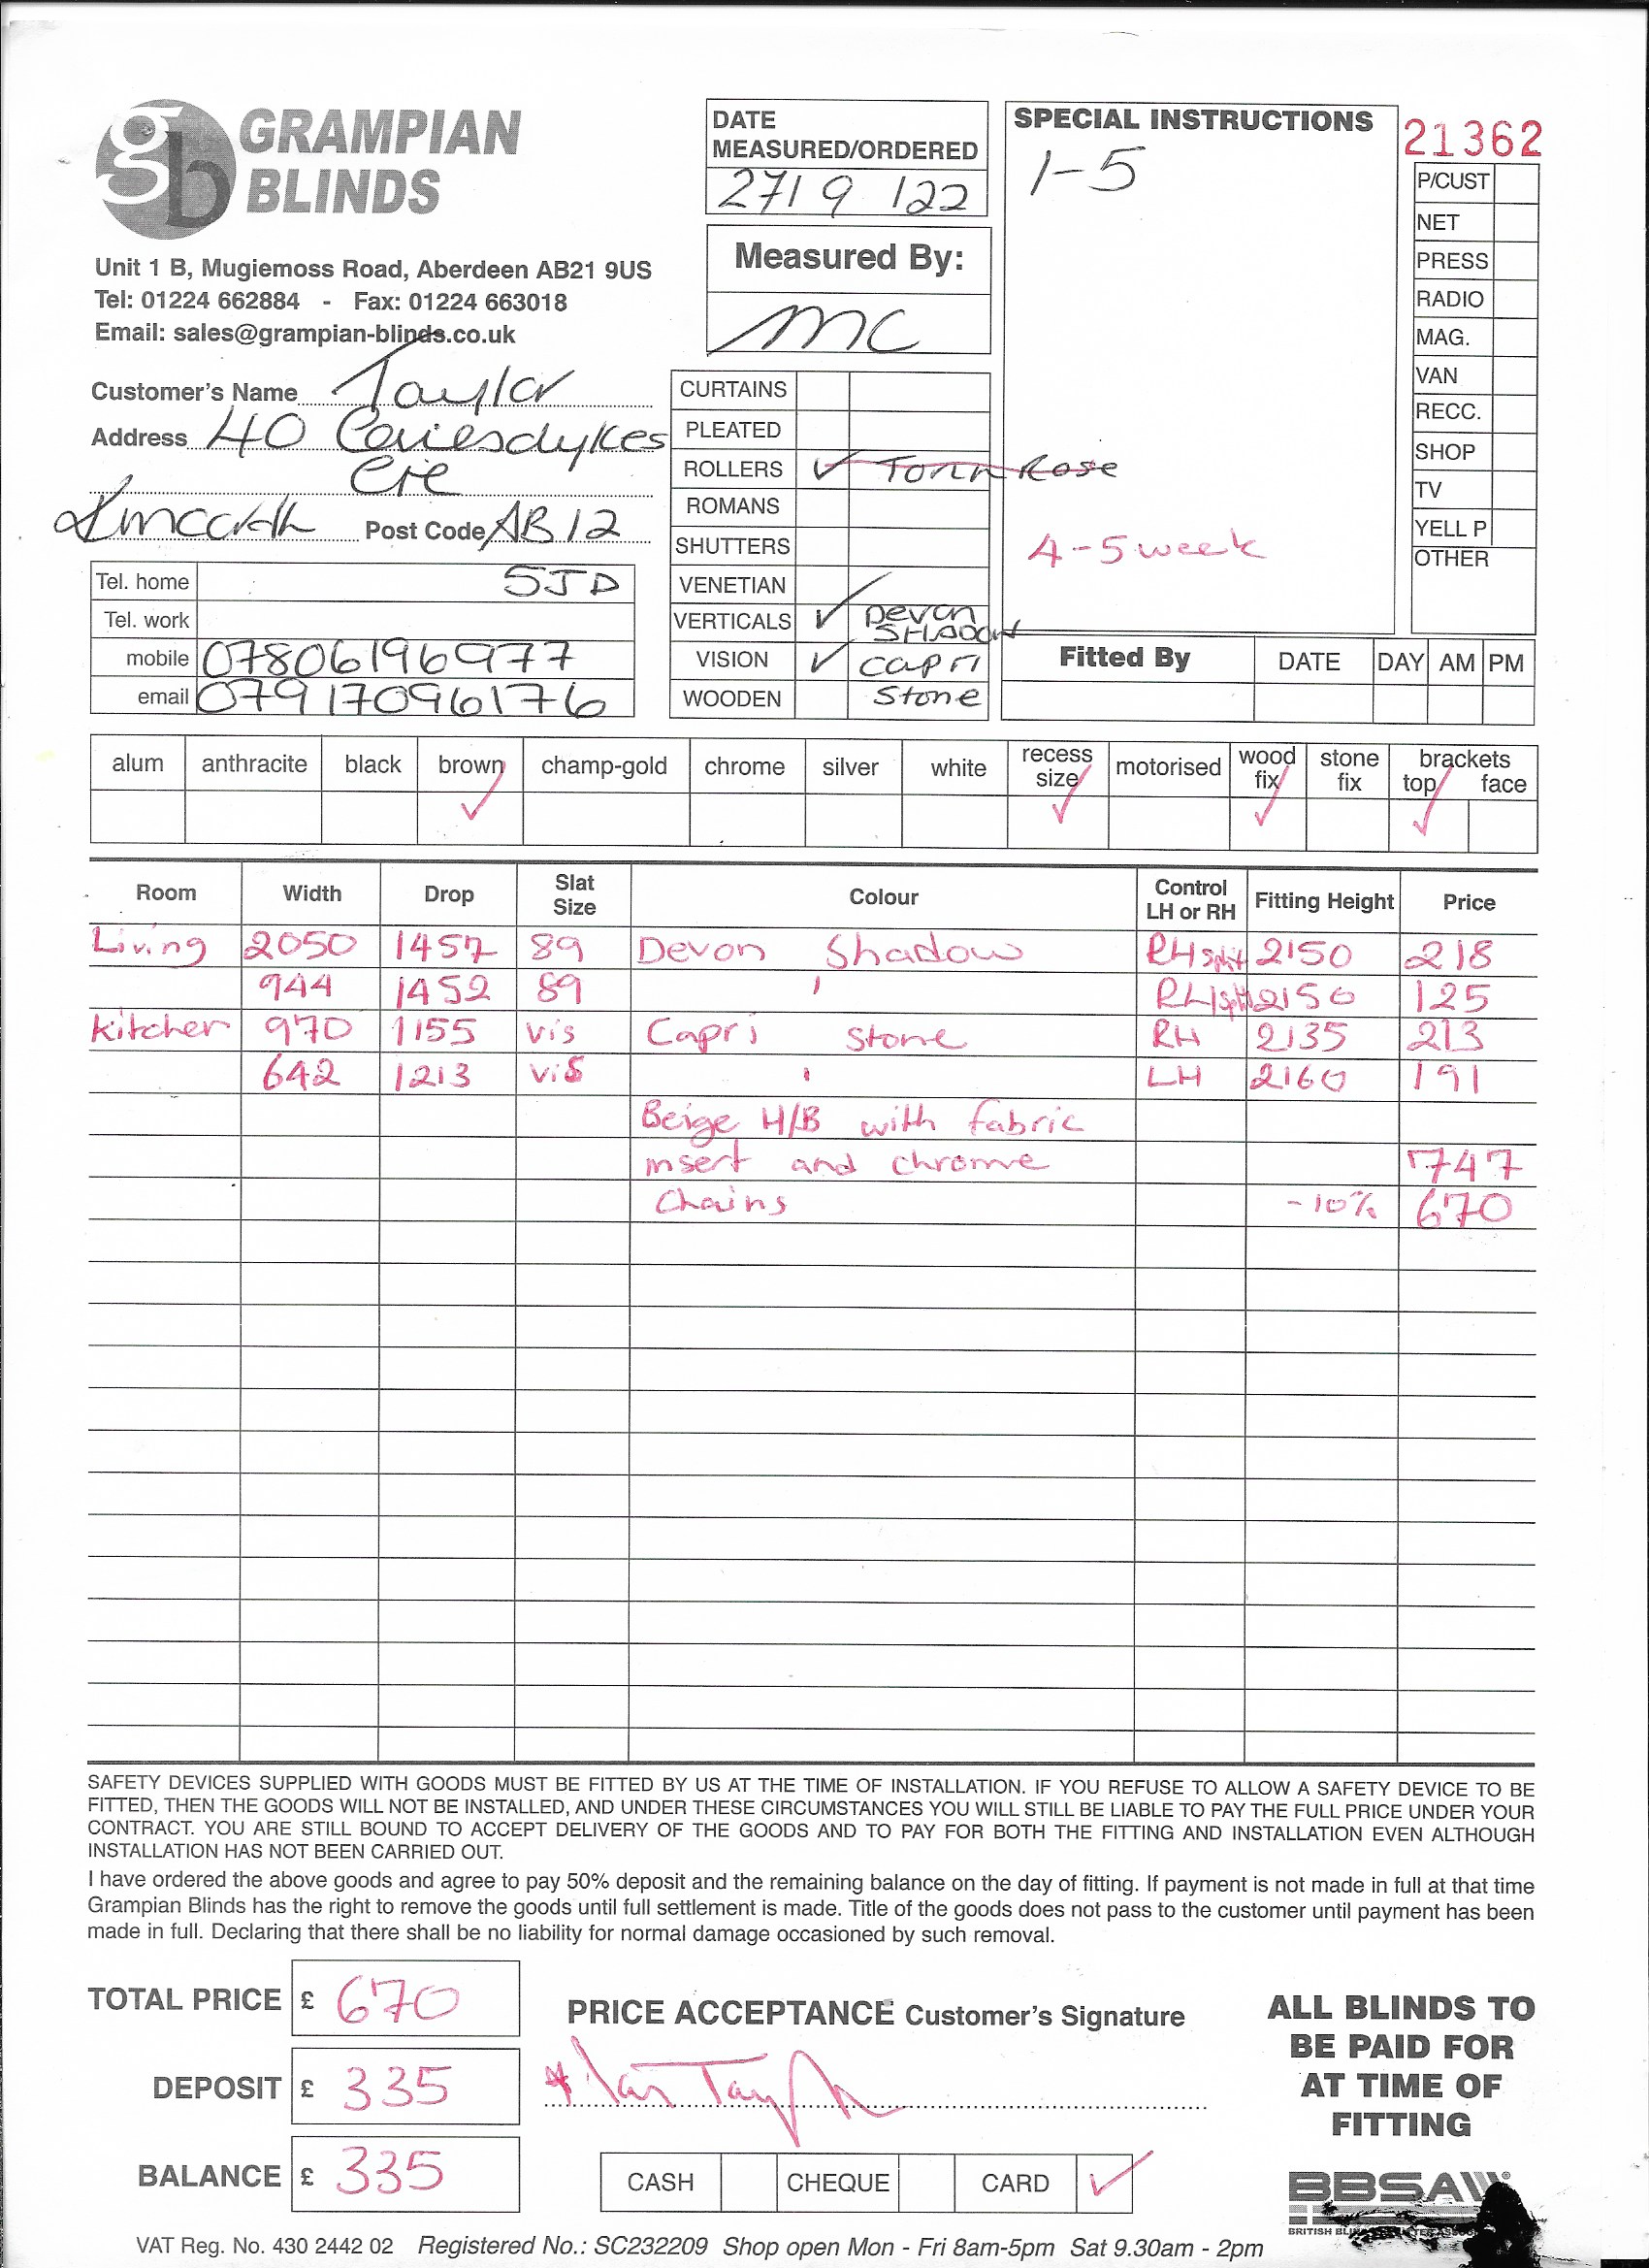 gb GRAMPIAN BLINDS
Unit 1 B, Mugiemoss Road, Aberdeen AB21 9US
Tel: 01224 662884 - Fax: 01224 663018
Email: sales@grampian-blinds.co.uk
Customer's Name Taylor
Address 40 Cairesdykes
Cre
Kincorth Post Code AB12
Tel. home 5JD
Tel. work
mobile 07806196977
email 07917096176
DATE
MEASURED/ORDERED
27/9/22
Measured By:
MC
CURTAINS
PLEATED
ROLLERS ✓ Rose
ROMANS
SHUTTERS
VENETIAN
VERTICALS ✓ Devon SHADOW
VISION ✓ Capri
WOODEN Stone
SPECIAL INSTRUCTIONS
1-5
4-5 week
21362
P/CUST
NET
PRESS
RADIO
MAG.
VAN
RECC.
SHOP
TV
YELL P
OTHER
Fitted By DATE DAY AM PM
alum anthracite black brown ✓ champ-gold chrome silver white recess size ✓ motorised wood fix ✓ stone fix brackets top ✓ face
Room Width Drop Slat Size Colour Control LH or RH Fitting Height Price
Living 2050 1457 89 Devon Shadow RH Split 2150 218
944 1452 89 " RH Split 2150 125
Kitchen 970 1155 vis Capri Stone RH 2135 213
642 1213 vis " LH 2160 191
Beige H/B with fabric
insert and chrome 747
Chains -10% 670
SAFETY DEVICES SUPPLIED WITH GOODS MUST BE FITTED BY US AT THE TIME OF INSTALLATION. IF YOU REFUSE TO ALLOW A SAFETY DEVICE TO BE
FITTED, THEN THE GOODS WILL NOT BE INSTALLED, AND UNDER THESE CIRCUMSTANCES YOU WILL STILL BE LIABLE TO PAY THE FULL PRICE UNDER YOUR
CONTRACT. YOU ARE STILL BOUND TO ACCEPT DELIVERY OF THE GOODS AND TO PAY FOR BOTH THE FITTING AND INSTALLATION EVEN ALTHOUGH
INSTALLATION HAS NOT BEEN CARRIED OUT.
I have ordered the above goods and agree to pay 50% deposit and the remaining balance on the day of fitting. If payment is not made in full at that time
Grampian Blinds has the right to remove the goods until full settlement is made. Title of the goods does not pass to the customer until payment has been
made in full. Declaring that there shall be no liability for normal damage occasioned by such removal.
TOTAL PRICE £ 670
DEPOSIT £ 335
BALANCE £ 335
PRICE ACCEPTANCE Customer's Signature
CASH CHEQUE CARD ✓
ALL BLINDS TO
BE PAID FOR
AT TIME OF
FITTING
BBSA
VAT Reg. No. 430 2442 02 Registered No.: SC232209 Shop open Mon - Fri 8am-5pm Sat 9.30am - 2pm